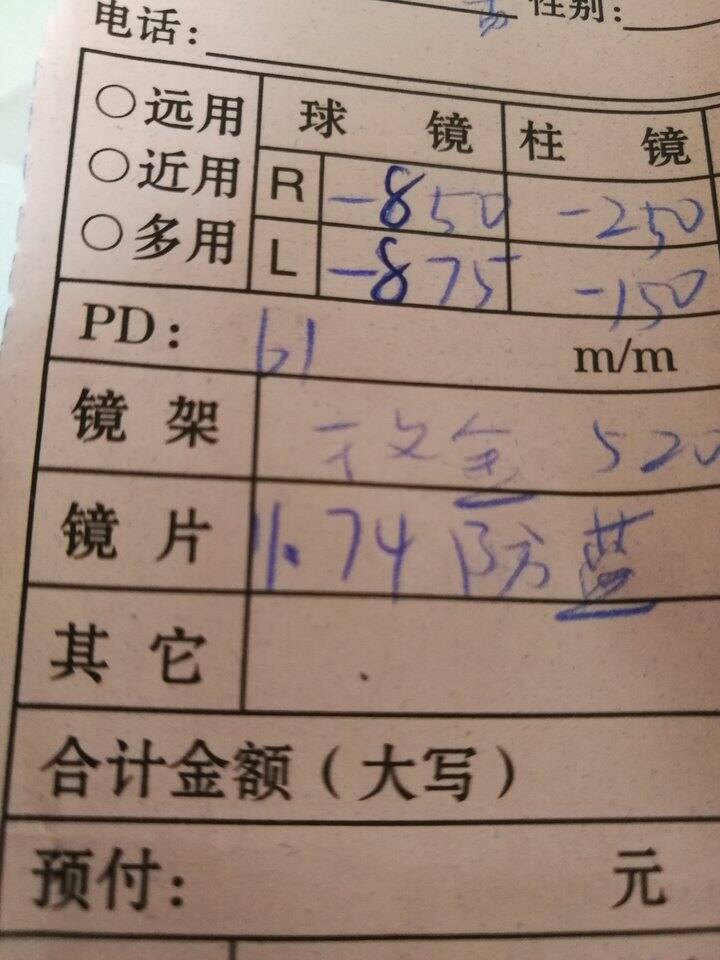 性别:
电话:
○远用 球 镜 柱 镜
○近用 R -850 -250
○多用 L -875 -150
PD: 61 m/m
镜 架 520
镜 片 1.74 防蓝
其它
合计金额(大写)
预付: 元